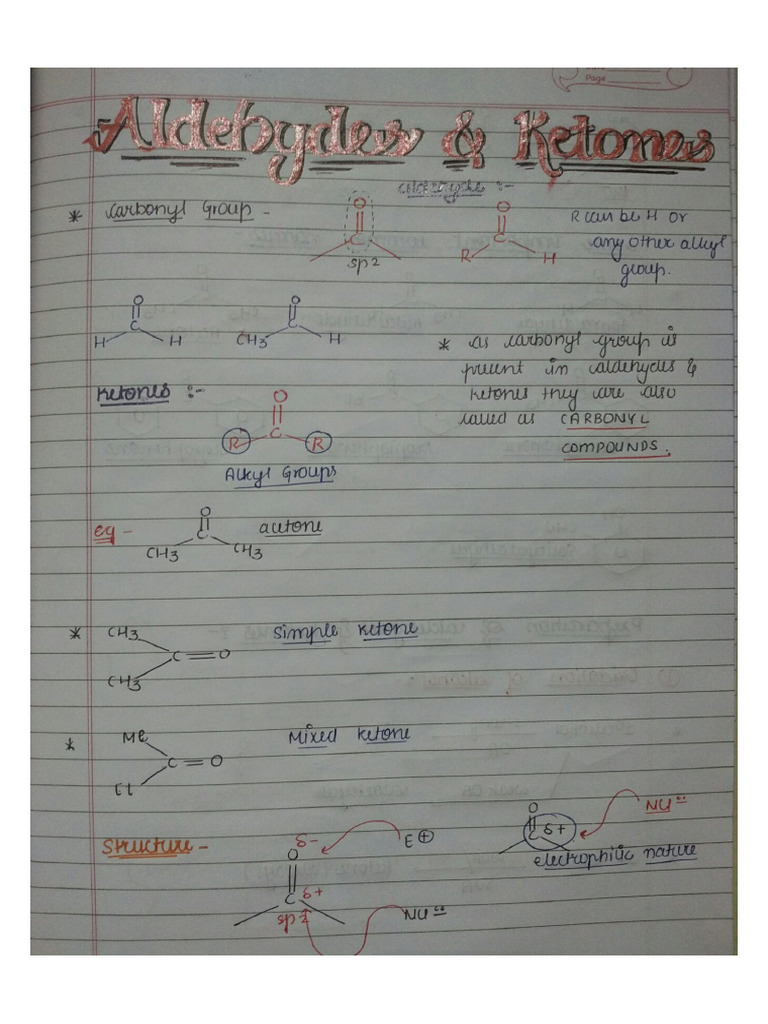 Page
Aldehydes & Ketones
* Carbonyl Group -
O
C
sp2
aldehyde :-
O
C
R H
R can be H or
any other alkyl
group.
O
C
H H
O
C
CH3 H
* As carbonyl group is
present in aldehydes &
ketones they are also
called as CARBONYL
COMPOUNDS.
Ketones :-
O
C
R R
Alkyl Groups
eg - O
C
CH3 CH3
acetone
* CH3
C = O
CH3
Simple ketone
* Me
C = O
Et
Mixed ketone
Structure -
δ-
O
C δ+
sp2
E⊕
Nu:
O
C δ+
Nu:
electrophilic nature